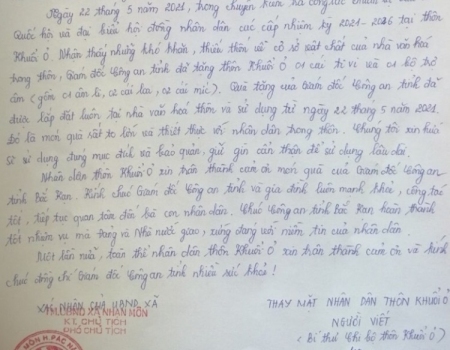 Ngày 22 tháng 5 năm 2021, trong chuyến kiểm tra công tác chuẩn bị
Quốc hội và đại biểu hội đồng nhân dân các cấp nhiệm kỳ 2021-2026 tại thôn
Khuổi Ỏ. Nhận thấy những khó khăn, thiếu thốn về cơ sở vật chất của nhà văn hoá
trong thôn, Giám đốc Công an tỉnh đã tặng thôn Khuổi Ỏ 01 cái ti vi và 01 bộ tr
âm (gồm 01 âm li, 02 cái loa, 02 cái míc). Quà tặng của Giám đốc Công an tỉnh đã
được lắp đặt luôn tại nhà văn hoá thôn và sử dụng từ ngày 22 tháng 5 năm 2021.
Đó là món quà rất to lớn và thiết thực với nhân dân trong thôn. Chúng tôi xin hứa
sẽ sử dụng đúng mục đích và bảo quản, giữ gìn cẩn thận để sử dụng lâu dài.
Nhân dân thôn Khuổi Ỏ xin trân thành cảm ơn món quà của Giám đốc Công an
tỉnh Bắc Kạn. Kính chúc Giám đốc Công an tỉnh và gia đình luôn mạnh khoẻ, công tác
tốt, tiếp tục quan tâm đến bà con nhân dân. Chúc Công an tỉnh Bắc Kạn hoàn thành
tốt nhiệm vụ mà Đảng và Nhà nước giao, xứng đáng với niềm tin của nhân dân.
Một lần nữa, toàn thể nhân dân thôn Khuổi Ỏ xin trân thành cảm ơn và kính
chúc đồng chí Giám đốc Công an tỉnh nhiều sức khoẻ!
XÁC NHẬN CỦA UBND XÃ
THAY MẶT NHÂN DÂN THÔN KHUỔI Ỏ
TM. UBND XÃ NHẠN MÔN
KT. CHỦ TỊCH
PHÓ CHỦ TỊCH
NGƯỜI VIẾT
(Bí thư Chi bộ thôn Khuổi Ỏ)
MÔN H. PÁC N